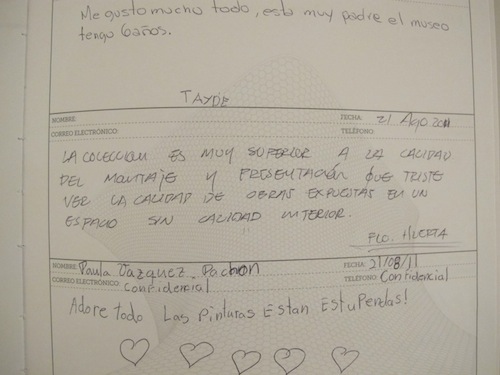 Me gusto mucho todo, esta muy padre el museo
tengo 6 años.
TAYDE
NOMBRE: FECHA: 21 Ago 2011
CORREO ELECTRÓNICO: TELÉFONO:
LA COLECCION ES MUY SUPERIOR A LA CALIDAD
DEL MONTAJE Y PRESENTACIÓN QUE TRISTE
VER LA CALIDAD DE OBRAS EXPUESTAS EN UN
ESPACIO SIN CALIDAD INTERIOR.
FCO. HUERTA
NOMBRE: Paula Vazquez Pachon FECHA: 21/08/11
CORREO ELECTRÓNICO: Confidencial TELÉFONO: Confidencial
Adore todo Las Pinturas Estan Estupendas!